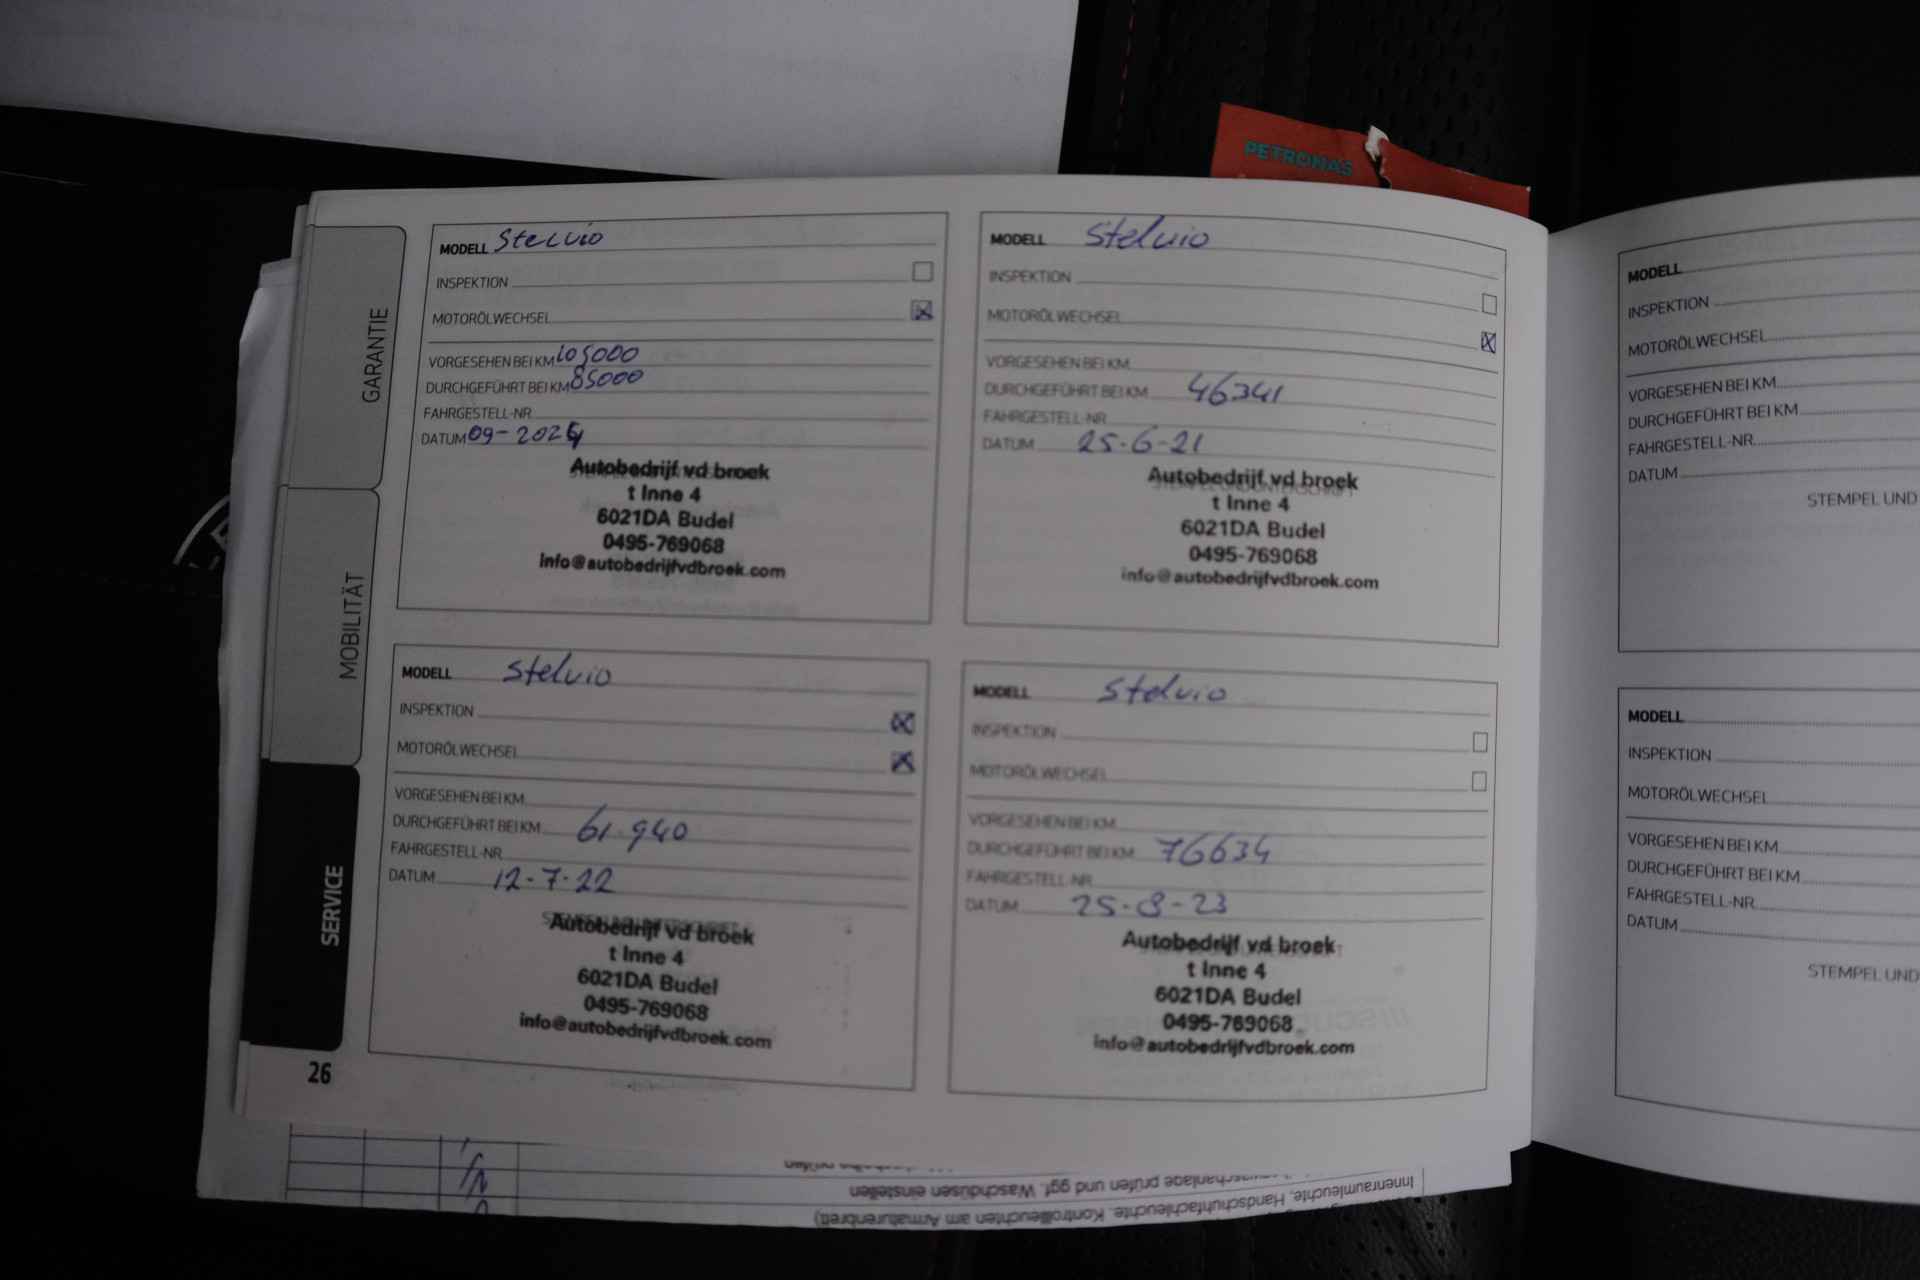 PETRONAS
GARANTIE
MOBILITÄT
SERVICE
MODELL Stelvio
INSPEKTION
MOTORÖLWECHSEL
VORGESEHEN BEI KM 105000
DURCHGEFÜHRT BEI KM 85000
FAHRGESTELL-NR
DATUM 09-2024
Autobedrijf vd broek
t Inne 4
6021DA Budel
0495-769068
info@autobedrijfvdbroek.com
MODELL Stelvio
INSPEKTION
MOTORÖLWECHSEL
VORGESEHEN BEI KM
DURCHGEFÜHRT BEI KM 46341
FAHRGESTELL-NR
DATUM 25-6-21
Autobedrijf vd broek
t Inne 4
6021DA Budel
0495-769068
info@autobedrijfvdbroek.com
MODELL Stelvio
INSPEKTION
MOTORÖLWECHSEL
VORGESEHEN BEI KM
DURCHGEFÜHRT BEI KM 61.940
FAHRGESTELL-NR
DATUM 12-7-22
Autobedrijf vd broek
t Inne 4
6021DA Budel
0495-769068
info@autobedrijfvdbroek.com
MODELL Stelvio
INSPEKTION
MOTORÖLWECHSEL
VORGESEHEN BEI KM
DURCHGEFÜHRT BEI KM 76634
FAHRGESTELL-NR
DATUM 25-8-23
Autobedrijf vd broek
t Inne 4
6021DA Budel
0495-769068
info@autobedrijfvdbroek.com
26
MODELL
INSPEKTION
MOTORÖLWECHSEL
VORGESEHEN BEI KM
DURCHGEFÜHRT BEI KM
FAHRGESTELL-NR.
DATUM
STEMPEL UND
MODELL
INSPEKTION
MOTORÖLWECHSEL
VORGESEHEN BEI KM
DURCHGEFÜHRT BEI KM
FAHRGESTELL-NR.
DATUM
STEMPEL UND
Innenraumleuchte, Handschuhfachleuchte, Kontrollleuchten am Armaturenbrett)
prüfen und ggf. Waschdüsen einstellen
prüfen